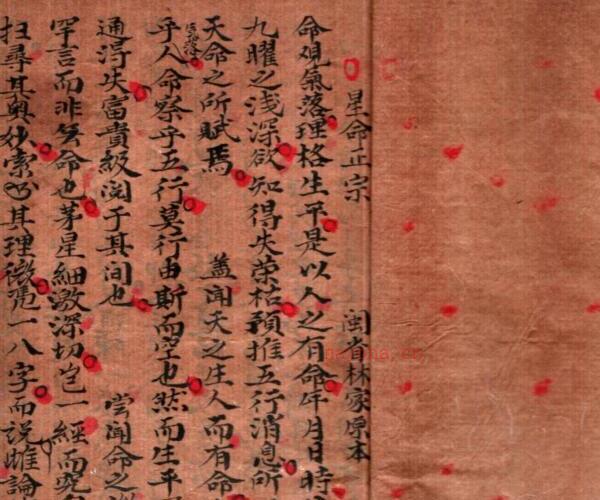 星命正宗　閩省林家原本
命觀氣落理格生平是以人之有命年月日時
九曜之浅深欲知得失荣枯預推五行消息所
天命之所賦焉　蓋闻天之生人而有命
乎人命察乎五行莫行由斯而空也然而生平
通得失富貴級闵于其间也　嘗闻命之
罕言而非公命也茅星細激深切岂一經而究
扫尋其奥妙索其理微凭一八字而説雖論